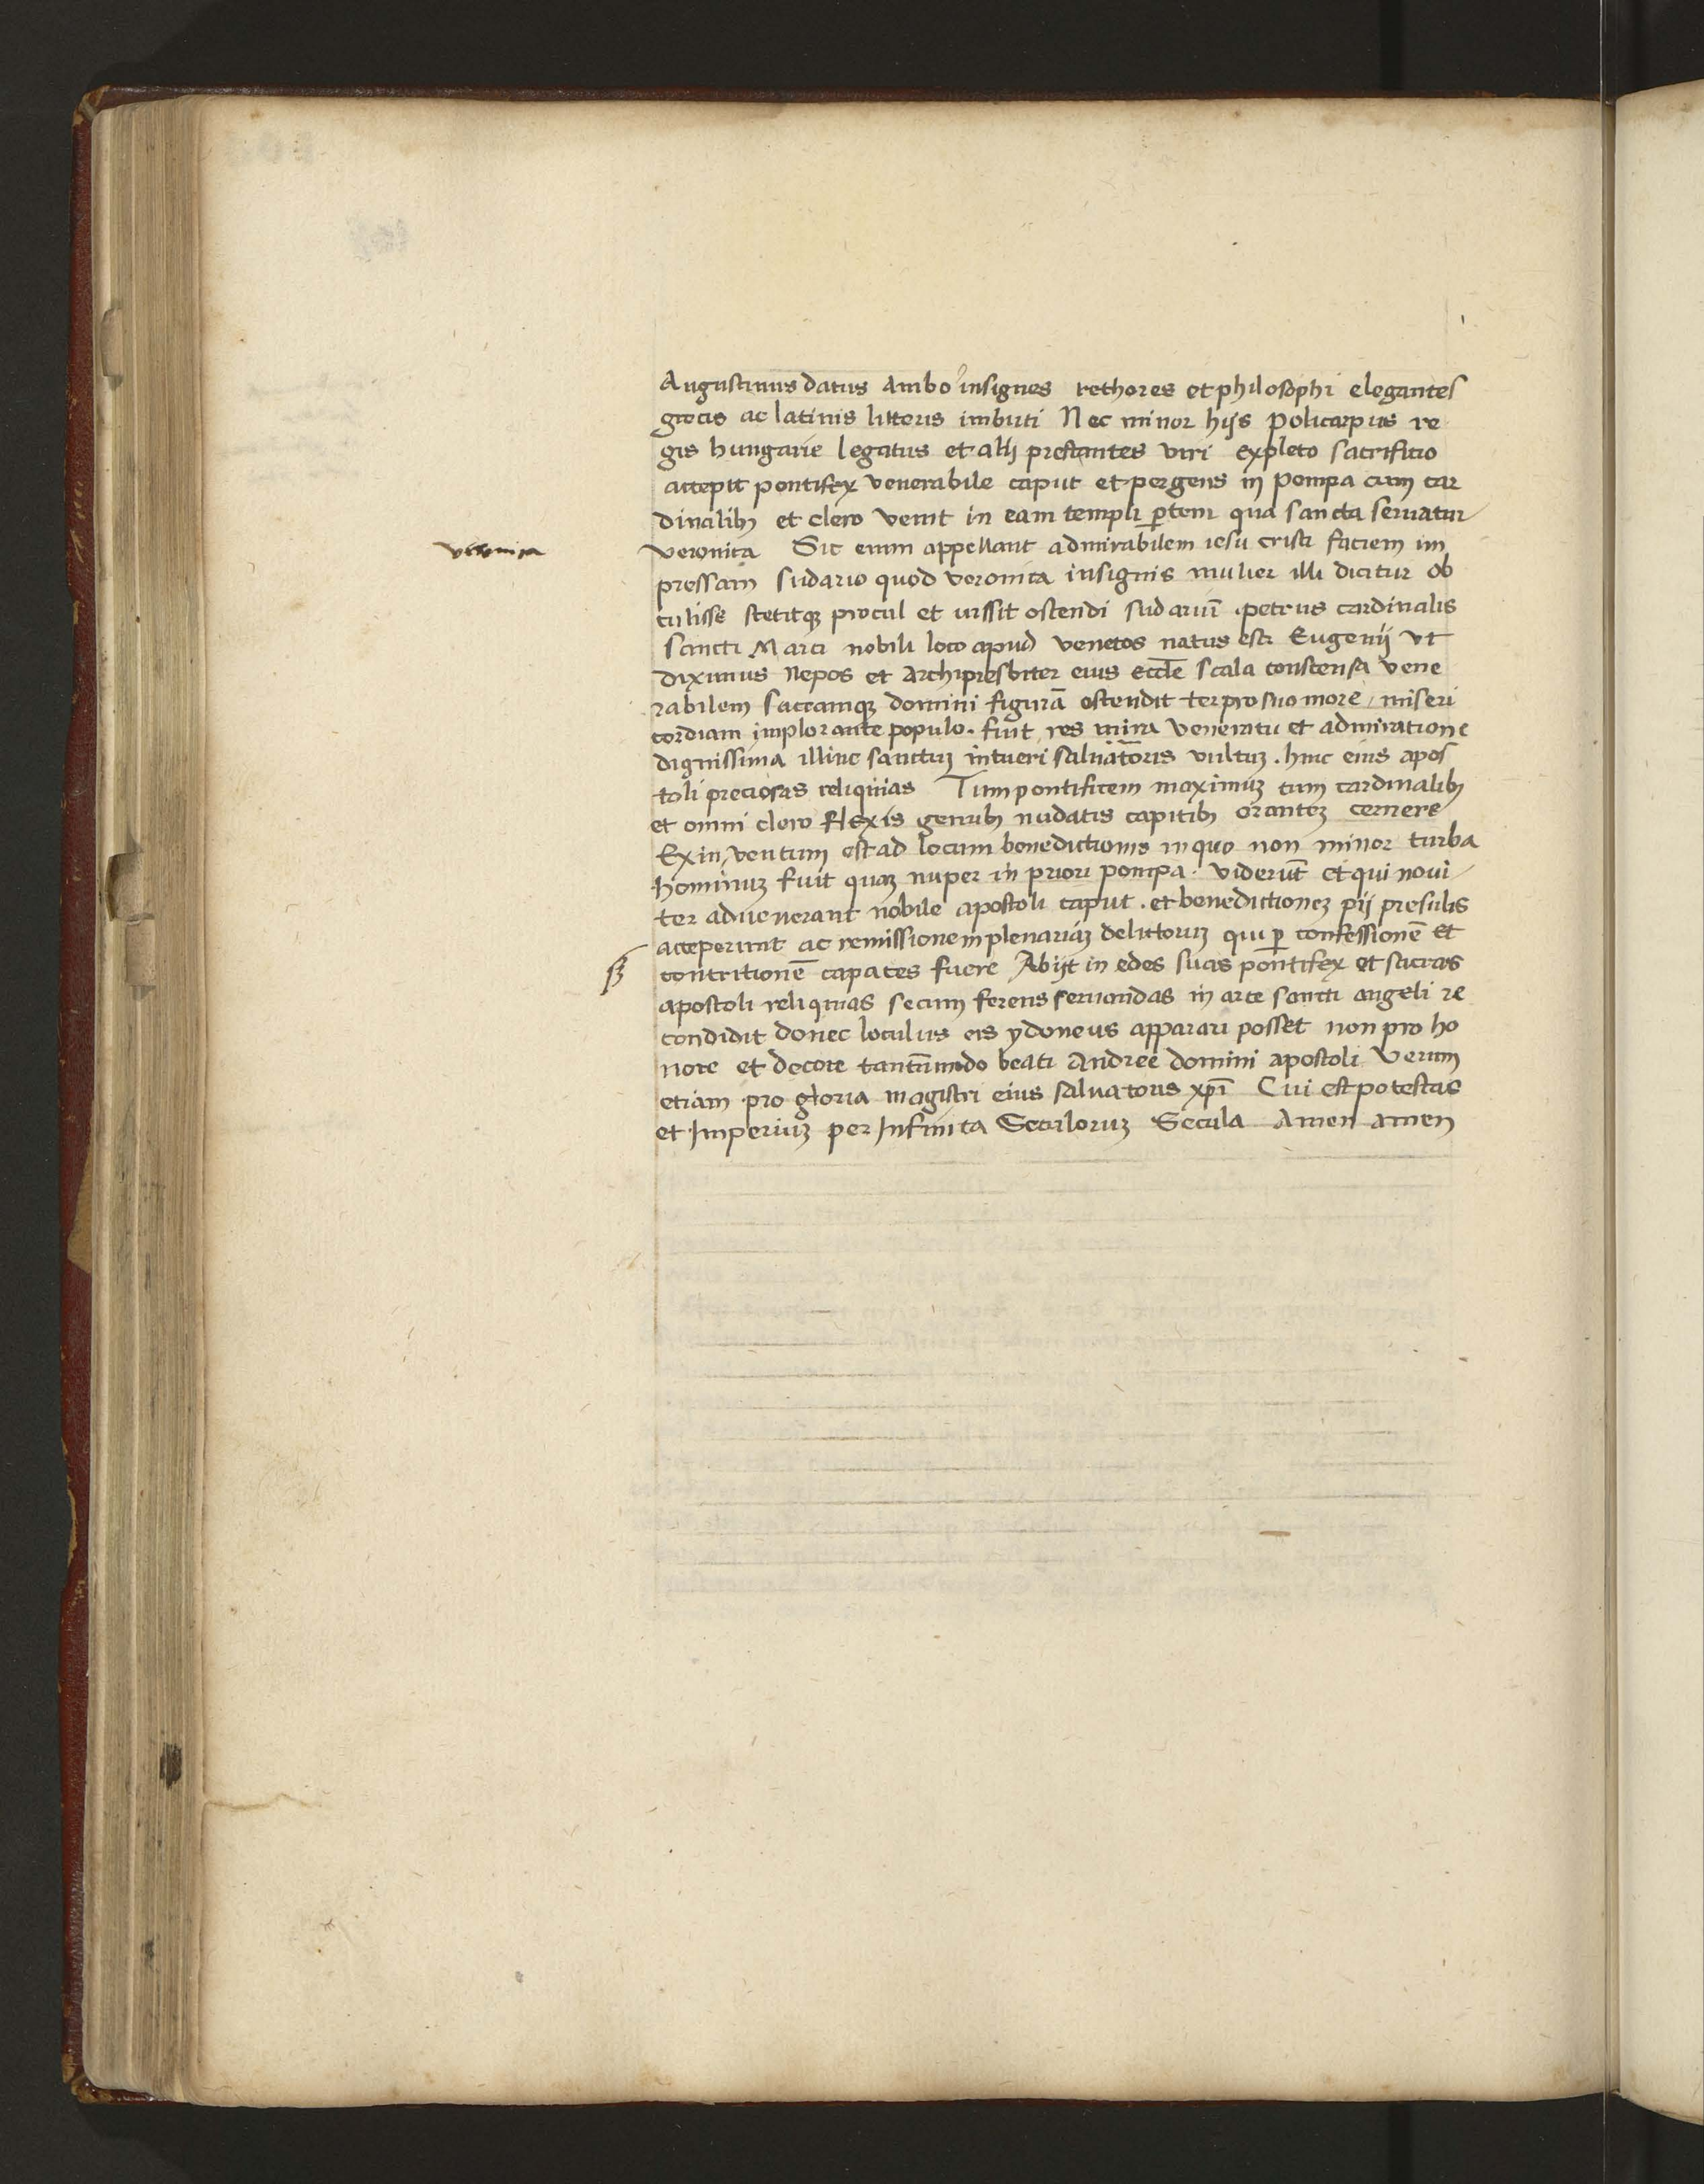 Augustinus datus ambo insignes rethores et philosophi elegantes
grecis ac latinis litteris imbuti Nec minor hijs Policarpus re
gis hungarie legatus et alij prestantes viri expleto sacrifitio
accepit pontifex venerabile caput et pergens in pompa cum car
dinalibꝫ et clero venit in eam templi ꝑtem qua sancta seruatur
veronica
veronica Sic enim appellant admirabilem iesu cristi faciem im
pressam sudario quod veronica insignis mulier illi dicitur ob
tulisse stetitqꝫ procul et iussit ostendi sudariū petrus cardinalis
sancti Marci nobili loco apud venetos natus esti Eugenij vt
diximus Nepos et archipresbiter eius eccl̄e scala conscensa vene
rabilem sacramqꝫ domini figurā ostendit ter pro suo more / miseri
cordiam implorante populo . fuit res mira veneratu et admiratione
dignissima illinc sanctuꝫ intueri saluatoris vultuꝫ . hinc eius apos
toli preciosas reliquias Tum pontificem maximuꝫ cum cardinalibꝫ
et omni clero flexis genibꝫ nudatis capitibꝫ oranteꝫ cernere
Exin ventum est ad locum benedictionis in quo non minor turba
hominuꝫ fuit quaꝫ nuper in priori pompa . viderūt et qui noui
ter aduenerant nobile apostoli caput . et benedictioneꝫ pij presulis
acceperunt ac remissionem plenariaꝫ delictoruꝫ qui ꝑ confessionē et
contritionē capaces fuere Abijt in edes suas pontifex et sacras
apostoli reliquias secum ferens seruandas in arce sancti angeli re
condidit donec loculus eis ydoneus apparari posset non pro ho
nore et decore tantūmodo beati Andree domini apostoli verum
etiam pro gloria magistri eius saluatoris xp̄i Cui est potestas
et Imperiuꝫ per Infinita Seculoruꝫ Secula Amen amen